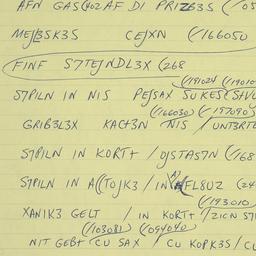 AFN GAS(402 AF DI PRIZB3S (/05
MEJB3SK3S CEJXN (/166050
FINF S7TEJNDL3X (268
(/191024 (/19010
S7PILN IN NIS PEJSAX SUKES(
(/166030) (/197090)
GRIB3L3X KACT3N NIS / UNT3RTL
S7PILN IN KORT+ / OJSTAS7N (/168
S7PILN IN A((TOJK3 / (24
(/193010
XANIK3 GELT / IN KORT+ / ZICN S7
(/103081) (/094040)
NIT GEBT CU SAX / CU KOPK3S / CU